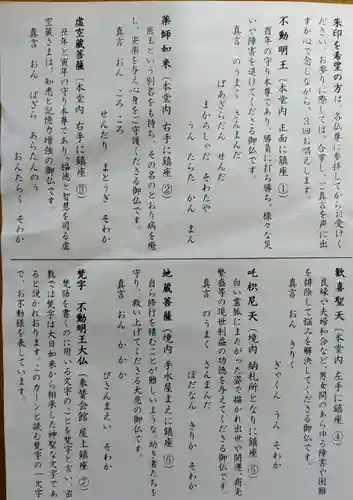 朱印を希望の方は、各仏尊に参拝してからお受けく
ださい。お参りに際してぼっ合掌し、ご真言を声に出
すか心で念じながら、3回お唱えします。
不動明王(本堂内 正面に鎮座 ①)
酉年の守り本尊であり、勝負に打ち勝ち、様々な災
いや障害を退けてくださる御仏です。
真言 のうまく さんまんだ
ばあざらだん せんだ
まかろしゃだ そわたや
うん たらた かん まん
薬師如来(本堂内 右手に鎮座 ②)
医王という別名をお持ち、その名のとおり病を癒
し、安楽を与え心身をご守護くださる御仏です。
真言 おん ころ ころ
せんだり まとうぎ そわか
虚空蔵菩薩(本堂内 右手に鎮座 ③)
丑年と寅年の守り本尊であり、福徳と智慧を司る虚
空蔵さまは、知恵と記憶力増強の御仏です。
真言 おん ばざら あらたんのう
おんたらく そわか
歓喜聖天(本堂内 左手に鎮座 ④)
良縁や夫婦和合など、男女間のあらゆる障害や困難
を排除して悩みを解決してくださる御仏です。
真言 おん きりく
ぎゃくうん うん そわか
吒枳尼天(境内 納札所となりに鎮座 ⑤)
白い霊狐にまたがった姿で描かれ出世や開運、商売
繁盛等の現世利益の功徳を与えてくださる御仏です。
真言 のうまく さんまんだ
ぼだなん きりか そわか
地蔵菩薩(境内 手水屋まえに鎮座 ⑥)
自ら修行を積むことが難しいような、幼き者たちを
守り、救い上げてくださる大悲の御仏です。
真言 おん か か か
びさんまえい そわか
梵字 不動明王大仏(奉賛会館 屋上鎮座 ⑦)
梵語を書くのに用いる文字のことを梵字と言い、密
教では梵字は大日如来から相承した神聖な文字であ
ると説かれおります。このカーンと読む梵字の一文字
で、お不動様を表しています。